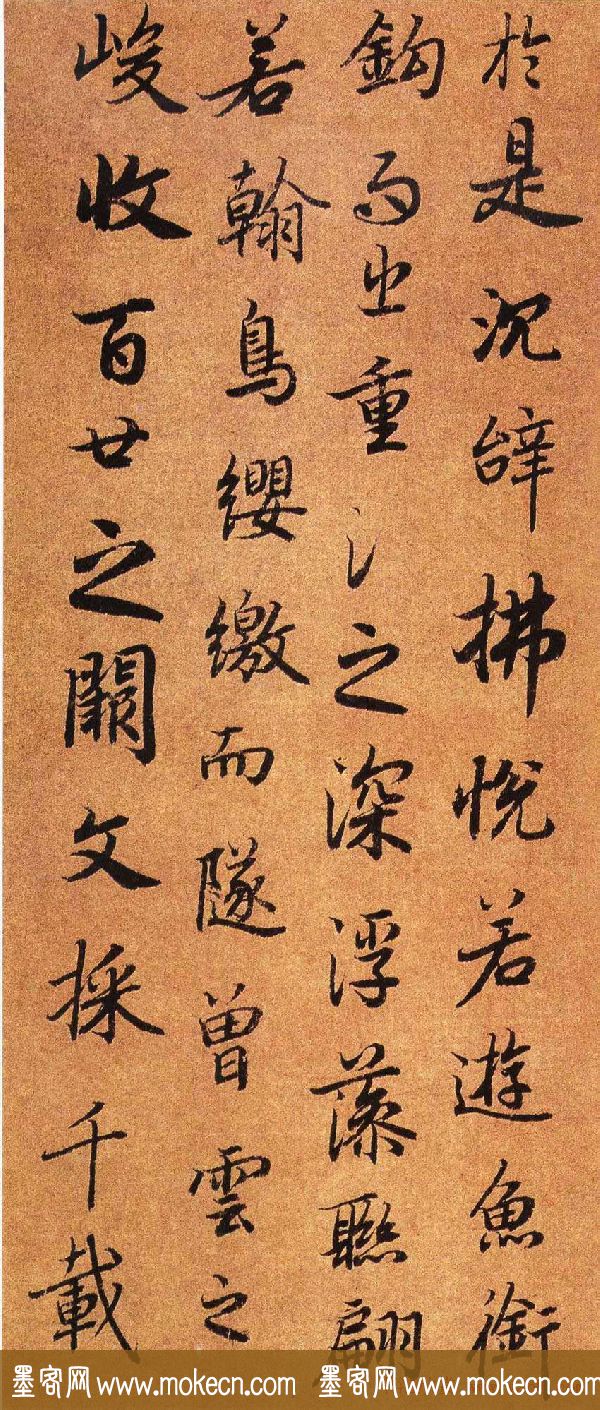 於是沉辭拂悅若遊魚銜
鈎而出重氵之深浮藻聯翩
若翰鳥纓繳而隧曾雲之
峻收百廿之闕文採千載
墨客网 www.mokecn.com 墨客网 www.mokecn.com